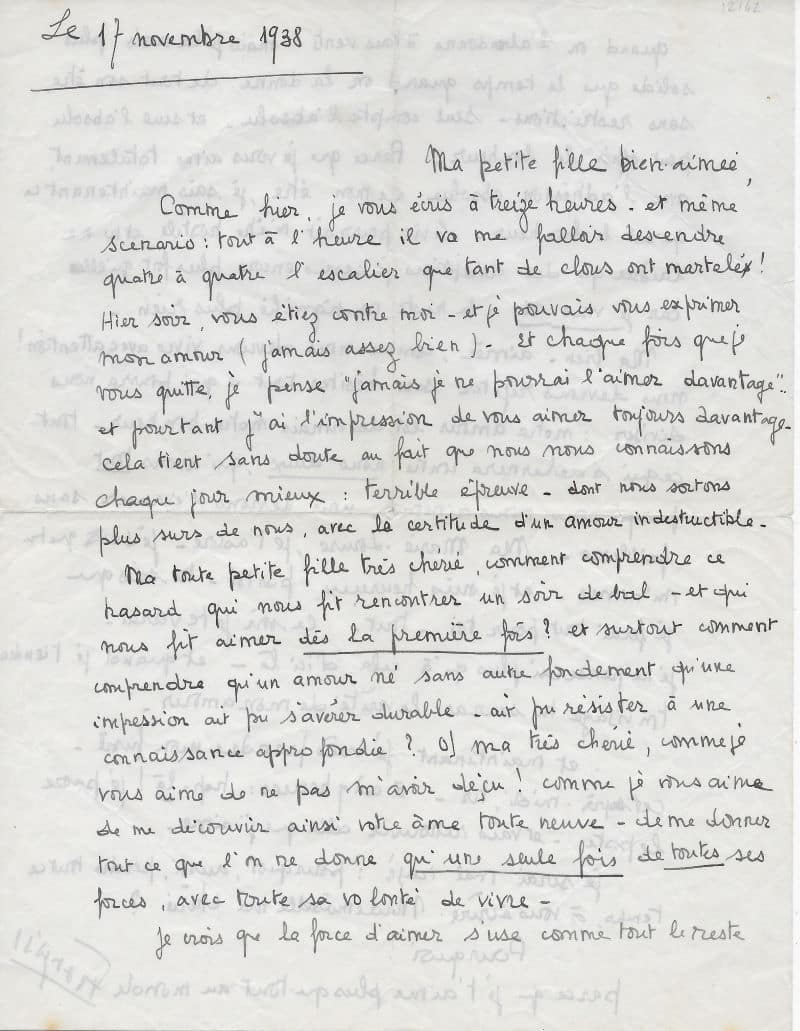 Le 17 novembre 1938
Ma petite fille bien-aimée,
Comme hier, je vous écris à treize heures - et même
scénario : tout à l'heure il va me falloir descendre
quatre à quatre l'escalier que tant de clous ont martelés !
Hier soir, vous étiez contre moi - et je pouvais vous exprimer
mon amour (jamais assez bien) - et chaque fois que je
vous quitte, je pense "jamais je ne pourrai l'aimer davantage"..
et pourtant j'ai l'impression de vous aimer toujours davantage -
cela tient sans doute au fait que nous nous connaissons
chaque jour mieux : terrible épreuve - dont nous sortons
plus surs de nous, avec la certitude d'un amour indestructible -
Ma toute petite fille très chérie, comment comprendre ce
hasard qui nous fit rencontrer un soir de bal - et qui
nous fit aimer dès la première fois ? et surtout comment
comprendre qu'un amour né sans autre fondement qu'une
impression ait pu s'avérer durable - ait pu résister à une
connaissance approfondie ? O ma très chérie, comme je
vous aime de ne pas m'avoir déçu ! comme je vous aime
de me découvrir ainsi votre âme toute neuve - de me donner
tout ce que l'on ne donne qu'une seule fois de toutes ses
forces, avec toute sa volonté de vivre -
Je crois que la force d'aimer s'use comme tout le reste